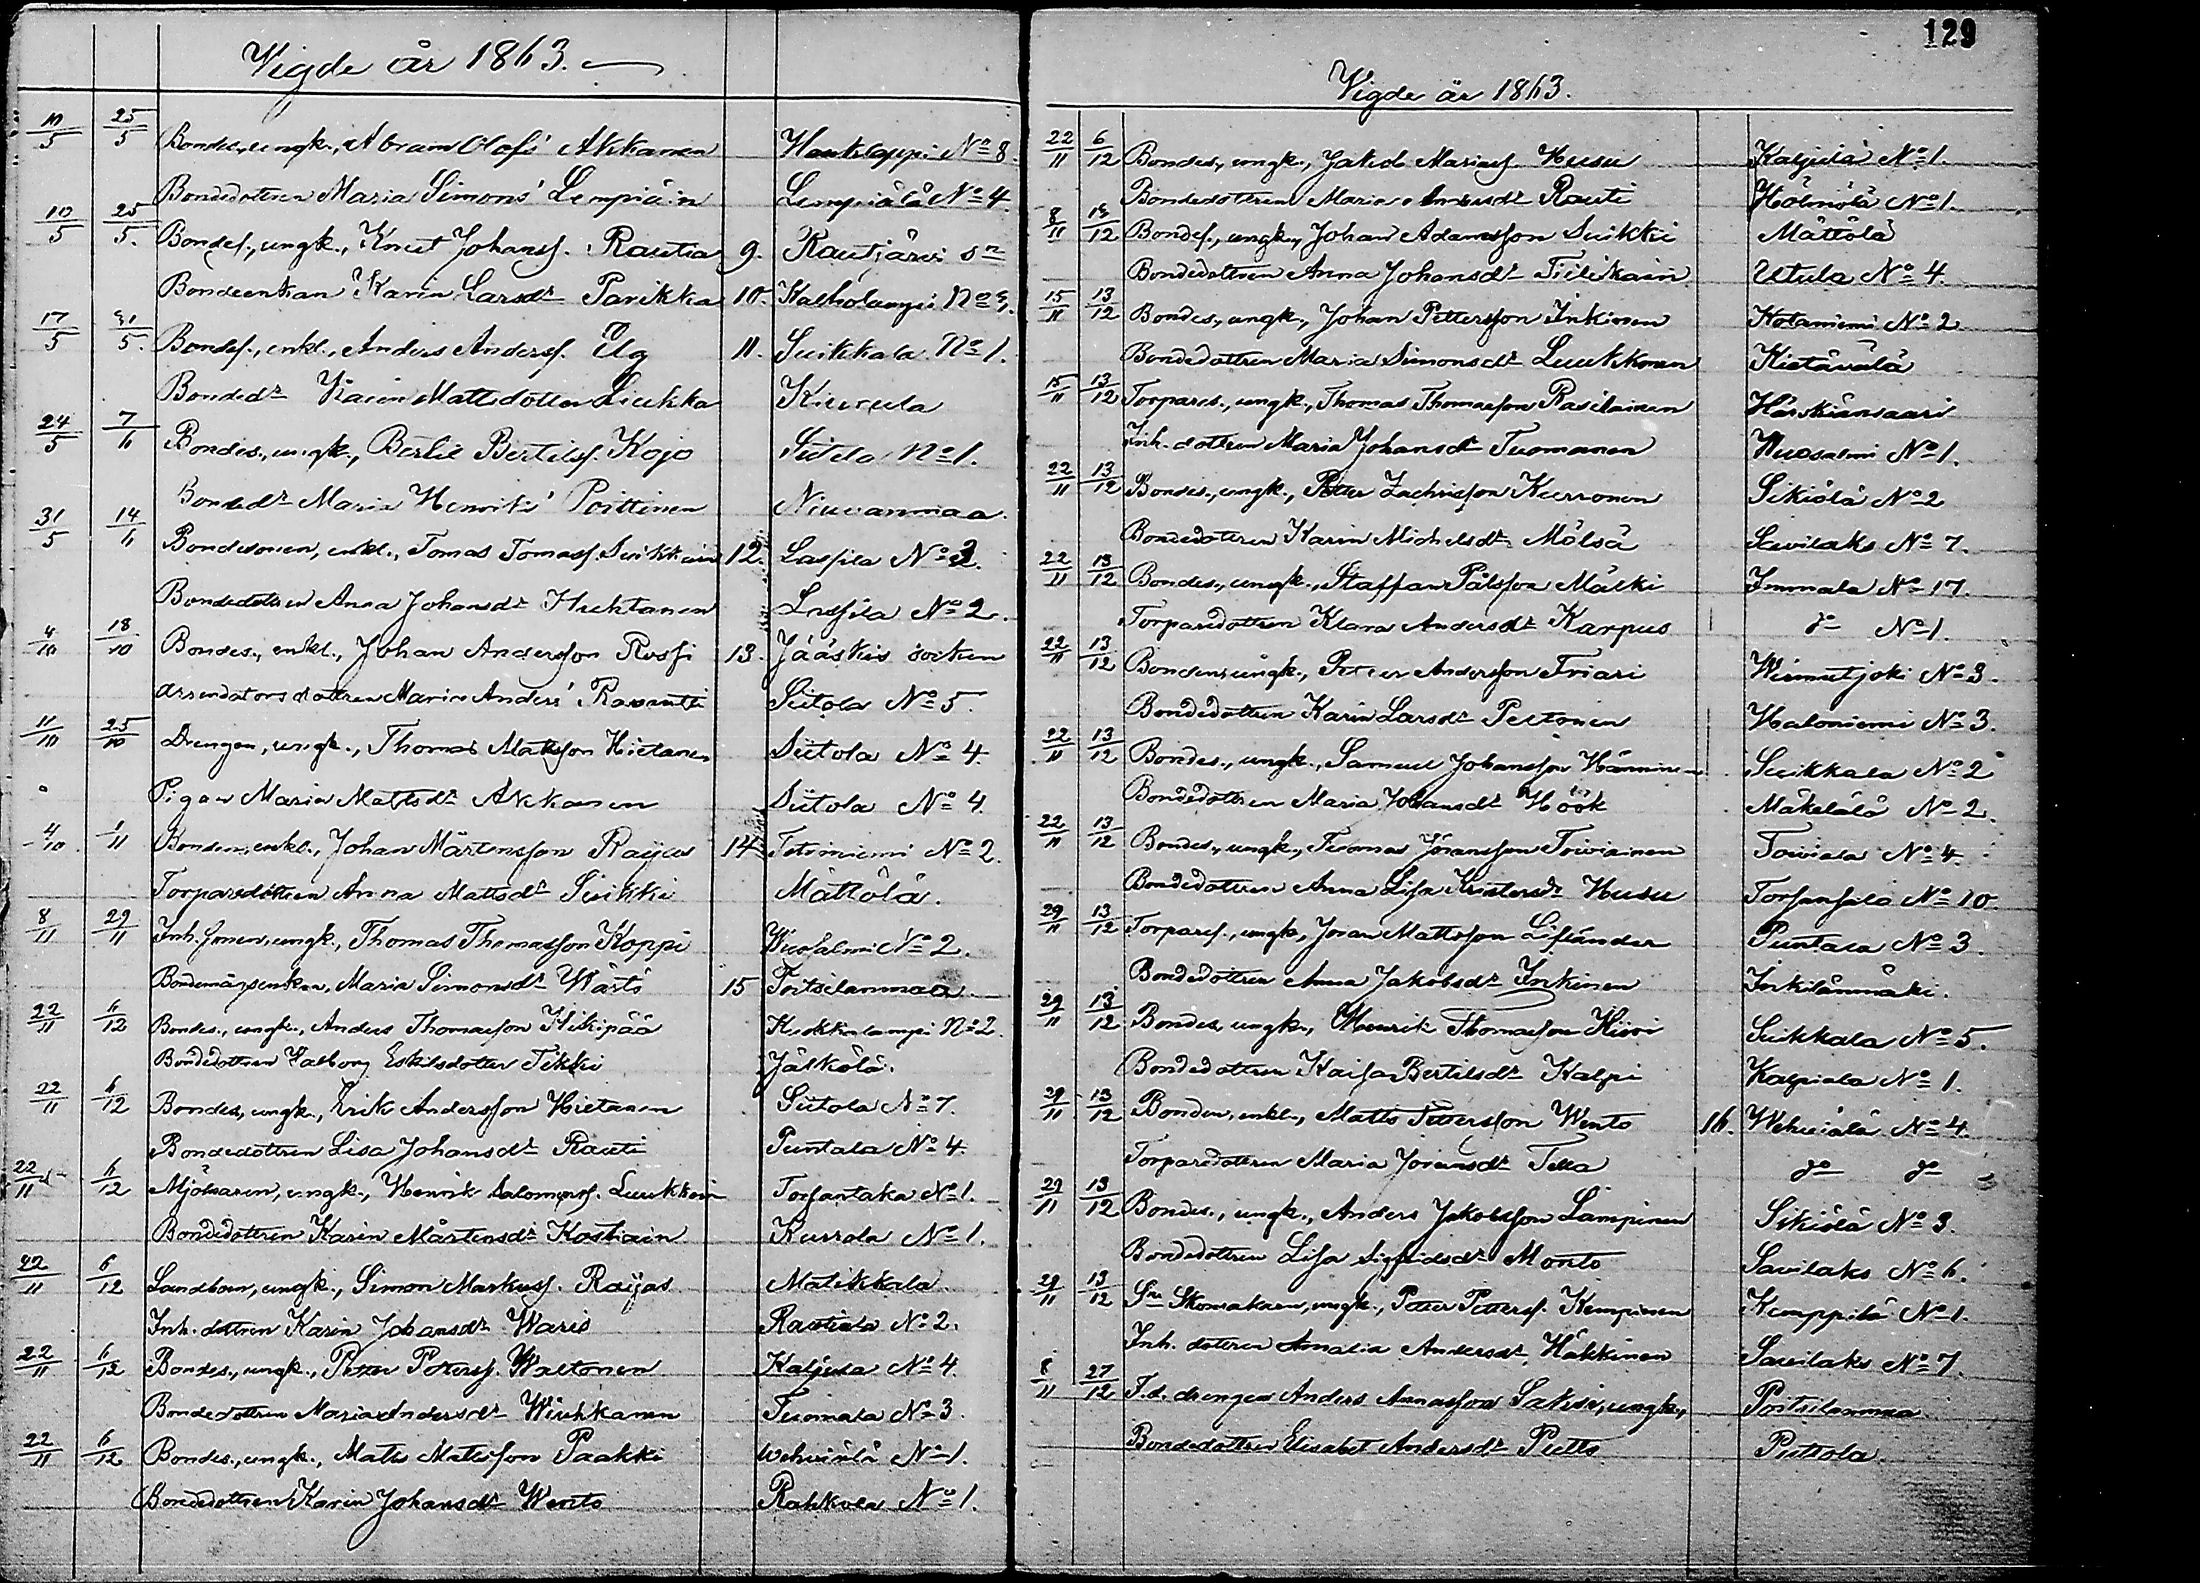 129
Vigde år 1863.
10/5 25/5 Bondes., ungk., Abram Olofs' Akkanen Hauklappi No 8.
Bondedottren Maria Simons' Lempiäin Lempiälä No 4.
10/5 25/5. Bondes., ungk., Knut Johanss. Rautia 9. Rautjärvi sn
Bondeenkan Karin Larsdr Parikka 10. Kalholampi No
17/5 31/5. Bondes., enkl., Anders Anderss. Ilg 11. Suikkala No 1.
Bondedr Karin Mattsdotter Liukka Kiurula
24/5 7/6 Bondes., ungk., Bertil Bertilss. Kojo Siitola No 1.
Bondedr Maria Henriks' Poittinen Niuvanmaa.
31/5 14/6 Bondesonen, enkl., Tomas Tomass. Suikkain 12. Lassila No 2.
Bondedottren Anna Johansdr Huhtanen Lassila No 2.
4/10 18/10 Bondes., enkl., Johan Andersson Rossi 13. Jääskis socken
Arrendatorsdottren Maria Anders' Ravantti Siitola No 5.
11/10 25/10 Drengen, ungk., Thomas Matsson Hietanen Siitola No 4.
Pigan Maria Mattsdr Akkanen Siitola No 4.
4/10 1/11 Bonden, enkl., Johan Mårtensson Raijas 14. Totiniemi No 2.
Torparedottren Anna Mattsdr Suikki Mättölä.
8/11 29/11 Inh. sonen, ungk., Thomas Thomasson Koppi Wuosalmi No 2.
Maria Simonsdr Wärtö 15 Poitsilanmaa
22/11 6/12 Bondes., ungk., Anders Thomasson Hikipää Kuokkalampi No 2.
Bondedottren Valborg Eskilsdotter Tikki Jälkölä.
22/11 6/12 Bondes., ungk., Erik Andersson Hietanen Siitola No 7.
Bondedottren Lisa Johansdr Rauti Puntala No 4.
22/11 6/12 Mjölnaren, ungk., Henrik Salomonss. Luukkain Torsantaka No 1.
Bondedottren Karin Mårtensdr Kostiain Kurrola No 1.
22/11 6/12 Landboen, ungk., Simon Markuss. Raijas Matikkala
Inh. dottren Karin Johansdr Waris Rautiala No 2.
22/11 6/12 Bondes., ungk., Peter Peterss. Waltonen Kaljula No 4.
Bondedottren Maria Andersdr Wirkkanen Tuomala No 3.
22/11 6/12 Bondes., ungk., Matts Matsson Paakki Wehviälä No 1.
Bondedottren Karin Johansdr Wento Rahkola No 1.
Vigde år 1863.
22/11 6/12 Bondes., ungk., Jakob Mariass. Husu Kaljula No 1.
Bondedottren Maria Andersdr Rauti Hölmölä No 1.
8/11 13/12 Bondes., ungk., Johan Adamsson Suikki Mättölä
Bondedottren Anna Johansdr Tiilikain Utula No 4.
15/11 13/12 Bondes., ungk., Johan Pettersson Inkinen Kotaniemi No 2.
Bondedottren Maria Simonsdr Luukkonen Kietävälä
15/11 13/12 Torpares., ungk., Thomas Thomasson Rasilainen Härskiänsaari
Inh. dottren Maria Johansdr Tuomanen Wuosalmi No 1.
22/11 13/12 Bondes., ungk., Petter Zachrisson Kurronen Sikiölä No 2
Bondedottren Karin Michelsdr Mölsä Savilaks No 7.
22/11 13/12 Bondes., ungk., Staffan Pålsson Mälki Immala No 17.
Torparedottren Klara Andersdr Karpus do No 1.
22/11 13/12 Bonden, ungk., Petter Andersson Friari Wirmutjoki No 3.
Bondedottren Karin Larsdr Peltonen Haloniemi No 3.
22/11 13/12 Bondes., ungk., Samuel Johansson Hänninen Suikkala No 2
Bondedottren Maria Johansdr Höök Mäkelälä No 2.
22/11 13/12 Bondes., ungk., Tuomas Göransson Toiviainen Toiviala No 4.
Bondedottren Anna Lisa Kristersdr Husu Torsansalo No 10.
29/11 13/12 Torpares., ungk., Joran Mattsson Lifländer Puntala No 3.
Bondedottren Anna Jakobsdr Inkinen Inkilänmäki.
29/11 13/12 Bondes., ungk., Henrik Thomasson Hiivi Suikkala No 5.
Bondedottren Kaisa Bertilsdr Kalpi Kalpiala No 1.
29/11 13/12 Bonden, enkl., Matts Pettersson Wento 16. Wehviälä No 4.
Torparedottren Maria Joransdr Tella do do
29/11 13/12 Bondes., ungk., Anders Jakobsson Lampinen Sikiölä No 3.
Bondedottren Lisa Sigfridsdr Monto Savilaks No 6.
29/11 13/12 Sn Skomakaren, ungk., Petter Petterss. Kemppinen Kemppilä No 1.
Inh. dottren Amalia Andersdr Häkkinen Savilaks No 7.
8/11 27/12 F.d. drengen Anders Annasson Saksa, ungk., Poitsilanmaa
Bondedottren Elisabet Andersdr Putto Puttola.